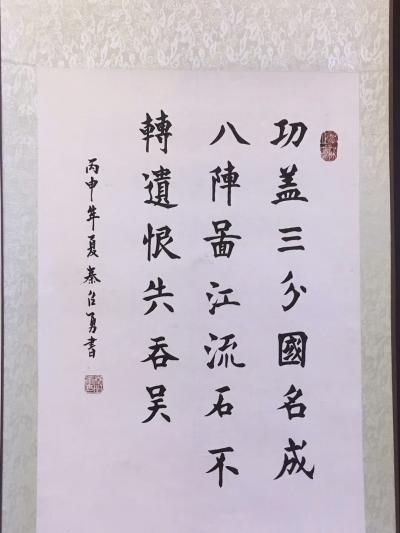 功盖三分國名成
八陣啚江流石不
轉遺恨失吞吴
丙申年夏秦召勇書